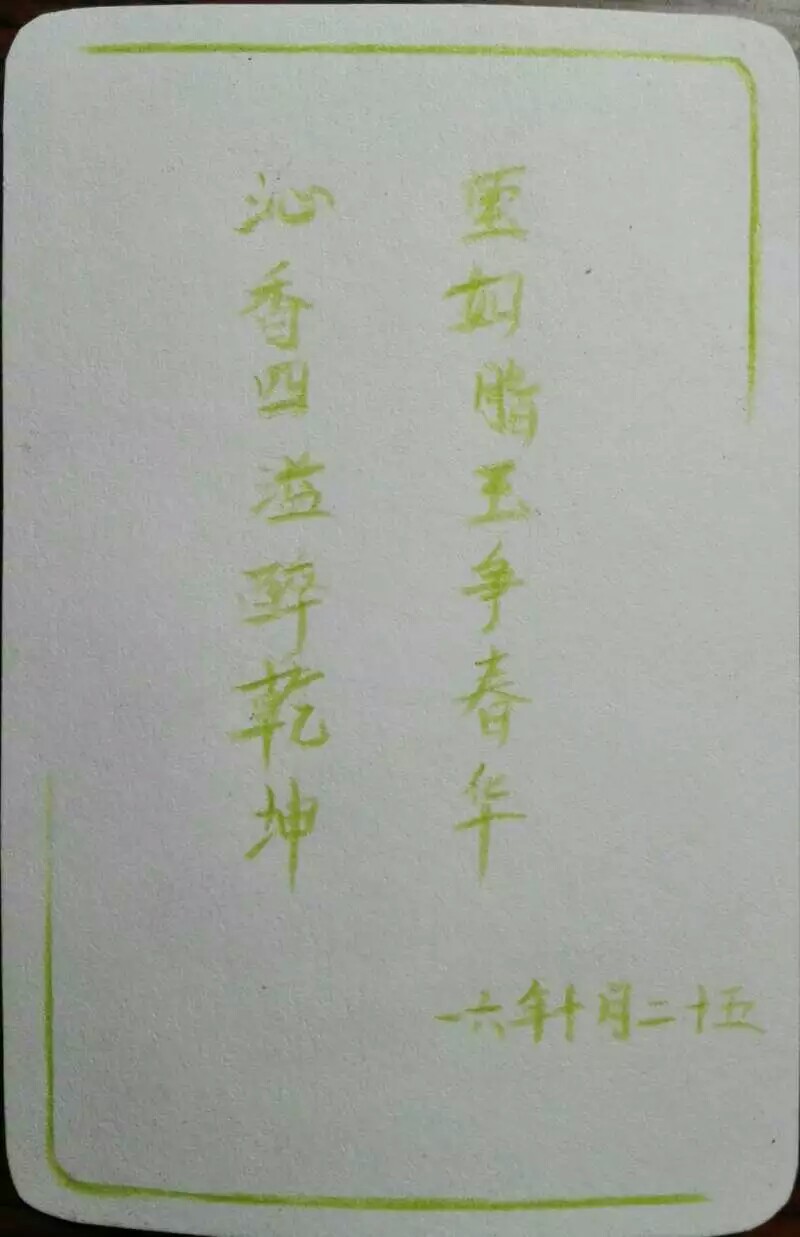 如脂玉争春华
沁香四溢醉乾坤
一六年十月二十五